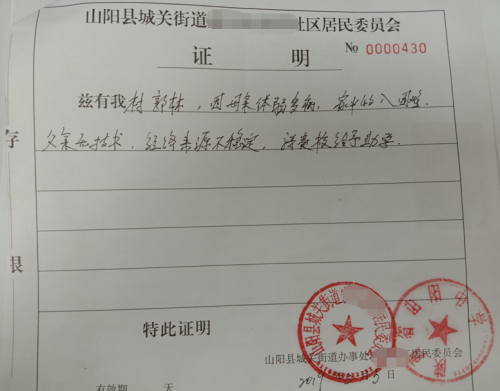 山阳县城关街道 社区居民委员会
证 明
№ 0000430
兹有我村郭林，因母亲体弱多病，家中收入困难，
父亲无技术，经济来源不稳定，请贵校给予助学。
存
根
特此证明
山阳县城关街道办事处 区居民委员会
日
有效期 天
山阳县城关街道 居民委员会